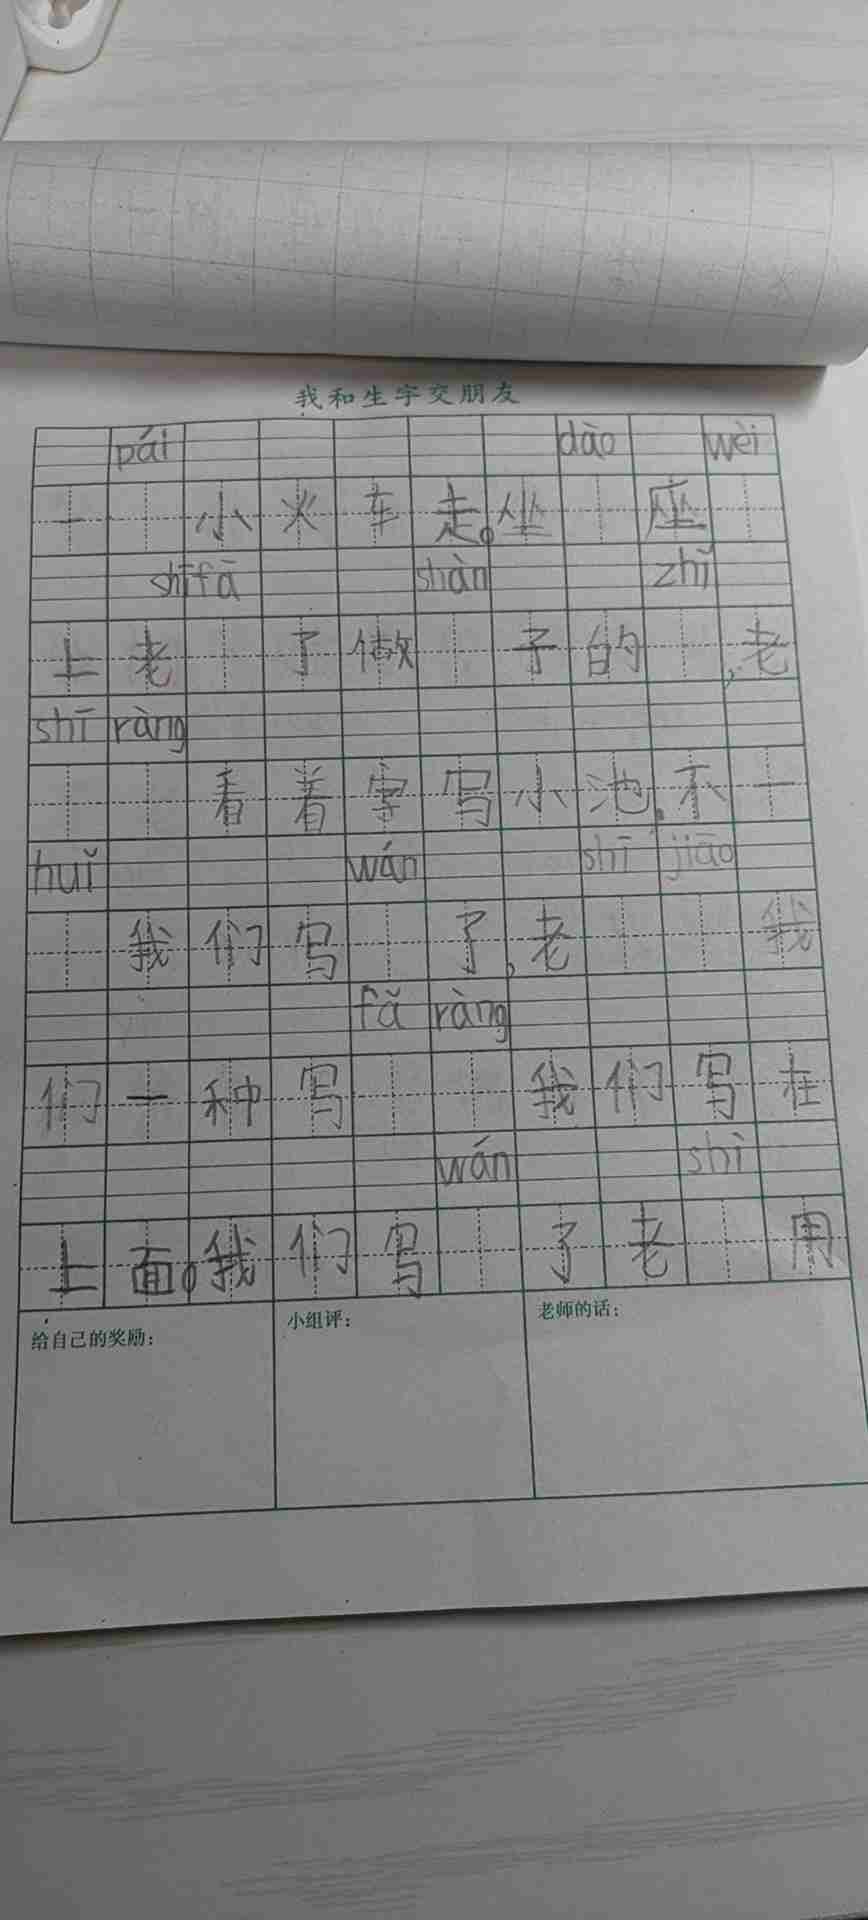 我和生字交朋友
pái dào wèi
一 小火车走。坐 座
shī fā shàn zhǐ
上老 了做 子的 ,老
shī ràng
看着字写小池,不一
huǐ wán shī jiāo
我们写 了,老 我
fǎ ràng
们一种写 我们写在
wán shì
上面。我们写 了老 用
给自己的奖励:
小组评:
老师的话: